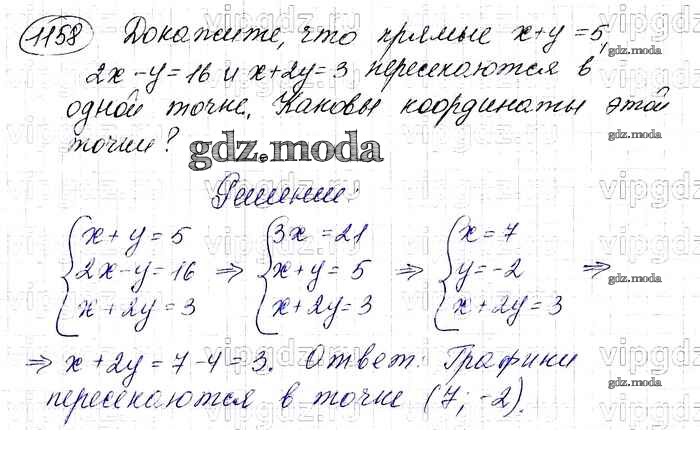 1158 Докажите, что прямые x+y=5,
2x-y=16 и x+2y=3 пересекаются в
одной точке. Каковы координаты этой
точки?
gdz.moda
Решение:
{x+y=5 {3x=21 {x=7
{2x-y=16 => {x+y=5 => {y=-2 =>
{x+2y=3 {x+2y=3 {x+2y=3
=> x+2y=7-4=3. Ответ: Графики
пересекаются в точке (7; -2).
gdz.moda
gdz.moda
gdz.moda